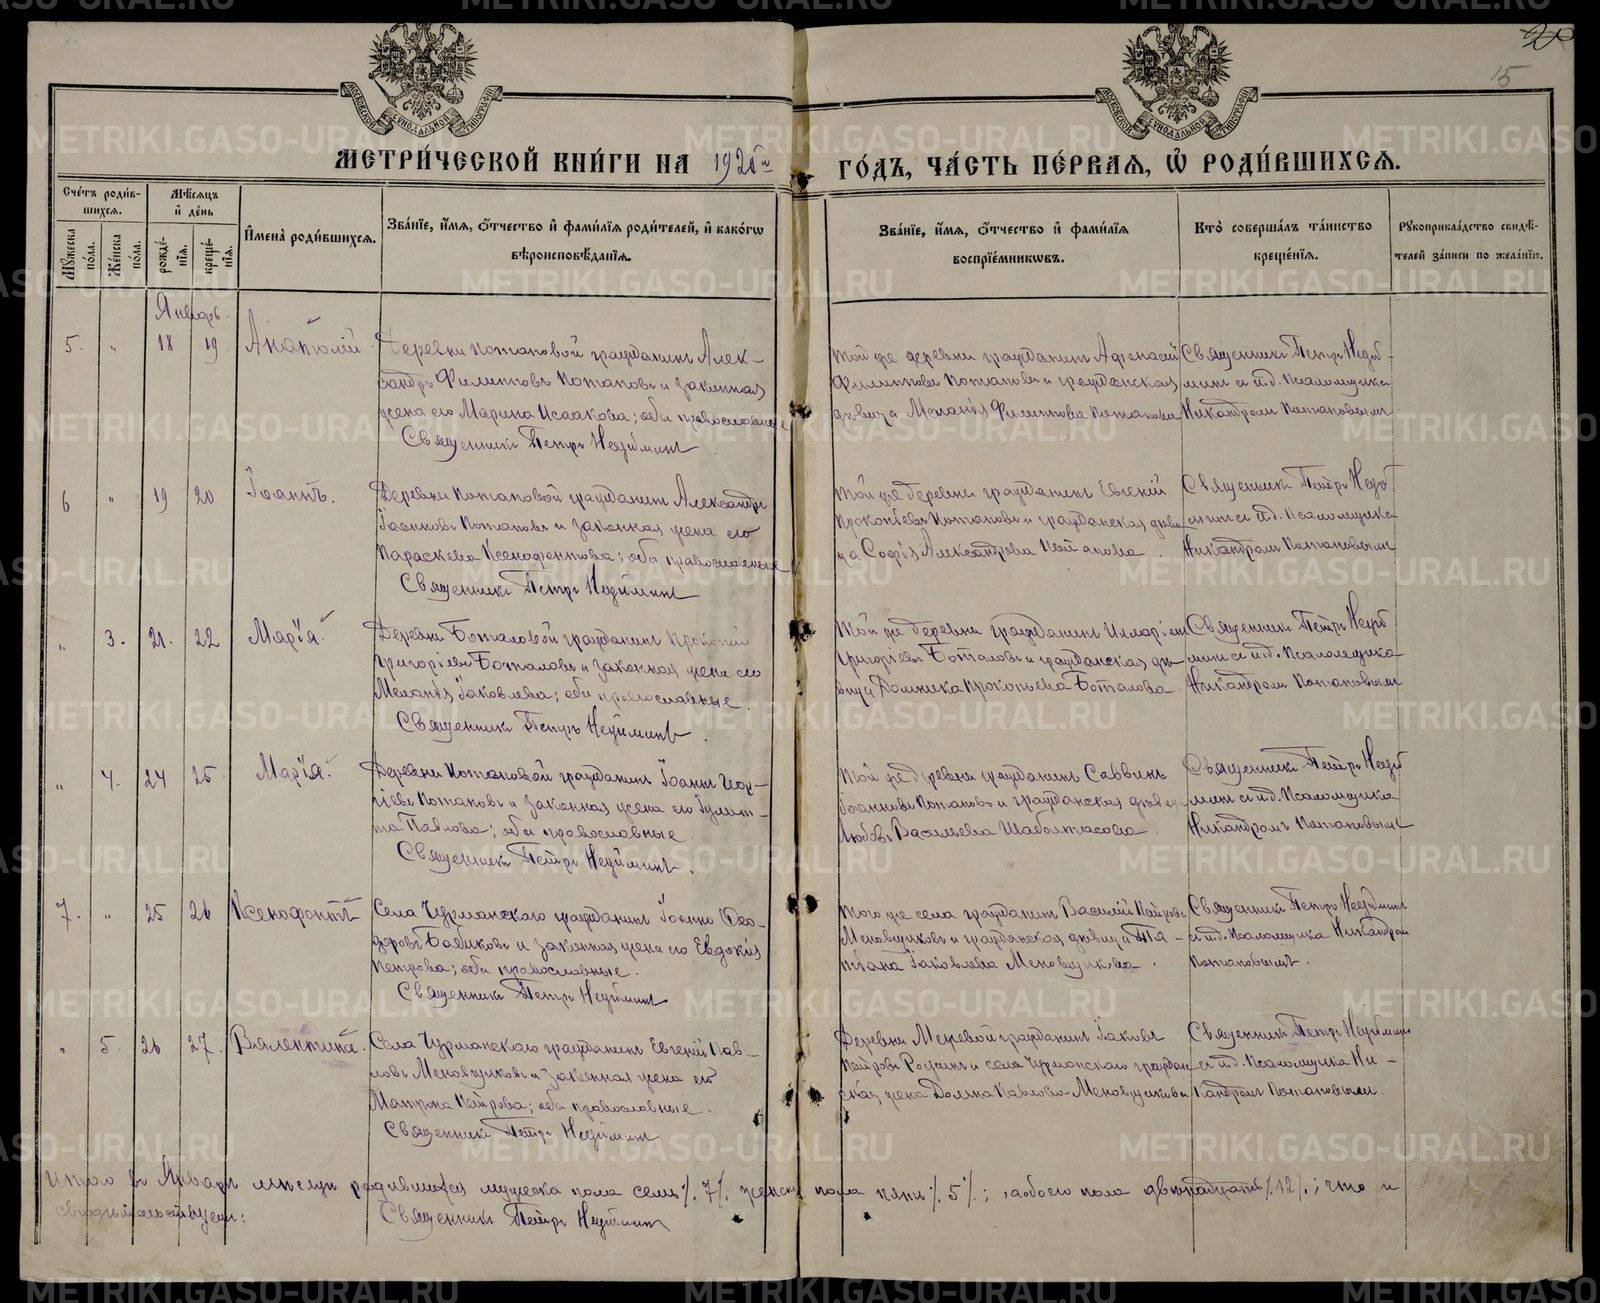 20
15
МОСКОВСКОЙ СУНОДАЛЬНОЙ ТИПОГРАФІИ
МОСКОВСКОЙ СУНОДАЛЬНОЙ ТИПОГРАФІИ
МЕТРИ́ЧЕСКОЙ КНИ́ГИ НА 1920й ГО́ДЪ, ЧА́СТЬ ПЕ́РВАЯ, Ѽ РОДИ́ВШИХСЯ.
Сче́тъ роди́в-
шихся.
Мѣ́сяцъ
и҆ де́нь
Мꙋ́жеска по́ла.
Же́нска по́ла.
рожде́нїѧ.
креще́нїѧ.
И҆мена̀ роди́вшихся.
Зва́нїе, и҆́мя, о҆́тчество и҆ фами́лїя роди́телей, и҆ како́гѡ
вѣроисповѣ́данїѧ.
Зва́нїе, и҆́мя, о҆́тчество и҆ фами́лїя
воспрїе́мникѡвъ.
Кто̀ соверша́лъ та́инство
креще́нїѧ.
Рꙋкоприкла́дство свидѣ́-
телей за́писи по жела́нїю.
Январь.
5. " 18 19 Анатолій
Деревни Потаповой гражданинъ Алек-
сандръ Филипповъ Потаповъ и законная
жена его Марина Исаакова; оба православные
Священникъ Петръ Неуйминъ
Той же деревни гражданинъ Афанасий
Филипповъ Потаповъ и гражданская
дѣвица Меланія Филиппова Потапова
Священникъ Петръ Неуй-
минъ съ и.д. псаломщика
Никандромъ Потаповымъ
6 " 19 20 Іоаннъ.
Деревни Потаповой гражданинъ Александръ
Іоанновъ Потаповъ и законная жена его
Параскева Ксенофонтова; оба православные
Священникъ Петръ Неуйминъ
Той же деревни гражданинъ Евгеній
Прокопьевъ Потаповъ и гражданская дѣви-
ца Софія Александрова Потапова.
Священникъ Петръ Неуй-
минъ съ и.д. псаломщика
Никандромъ Потаповымъ
" 3. 21. 22 Марія
Деревни Боталовой гражданинъ Прокопій
Григоріевъ Боталовъ и законная жена его
Меланія Іаковлева; оба православные.
Священникъ Петръ Неуйминъ.
Той же деревни гражданинъ Иларіонъ
Григоріевъ Боталовъ и гражданская дѣ-
вица Домника Прокопьева Боталова.
Священникъ Петръ Неуй-
минъ съ и.д. псаломщика
Никандромъ Потаповымъ
" 4. 24 25 Марія
Деревни Потаповой гражданинъ Іоаннъ Геор-
гіевъ Потаповъ и законная жена его Іулит-
та Павлова; оба православные.
Священникъ Петръ Неуйминъ.
Той же деревни гражданинъ Саввинъ
Іоанновъ Потаповъ и гражданская дѣвица
Любовь Васильева Шаболтасова.
Священникъ Петръ Неуй-
минъ съ и.д. псаломщика
Никандромъ Потаповымъ
7. " 25 26 Ксенофонтъ
Села Чурманскаго гражданинъ Іоаннъ Ѳео-
доровъ Бабиковъ и законная жена его Евдокія
Петрова; оба православные.
Священникъ Петръ Неуйминъ
Того же села гражданинъ Василій Петровъ
Меновщиковъ и гражданская дѣвица Та-
тіана Іаковлева Меновщикова.
Священникъ Петръ Неуйминъ
съ и.д. псаломщика Никандром
Потаповымъ.
" 5. 26 27. Валентина.
Села Чурманскаго гражданинъ Евгеній Пав-
ловъ Меновщиковъ и законная жена его
Матрона Петрова; оба православные.
Священникъ Петръ Неуйминъ
Деревни Меневой гражданинъ Іаковъ
Петровъ и села Чурманскаго граждан-
ская жена Домна Павлова Меновщикова
Священникъ Петръ Неуйминъ
съ и.д. псаломщика Ни-
кандромъ Потаповымъ.
Итого въ Январѣ мѣсяцѣ родившихся мужеска пола семь %. 7 %. женска пола пять %. 5 %; обоего пола двѣнадцать %. 12 %; что и
свидѣтельствуемъ:
Священникъ Петръ Неуйминъ
METRIKI.GASO-URAL.RU